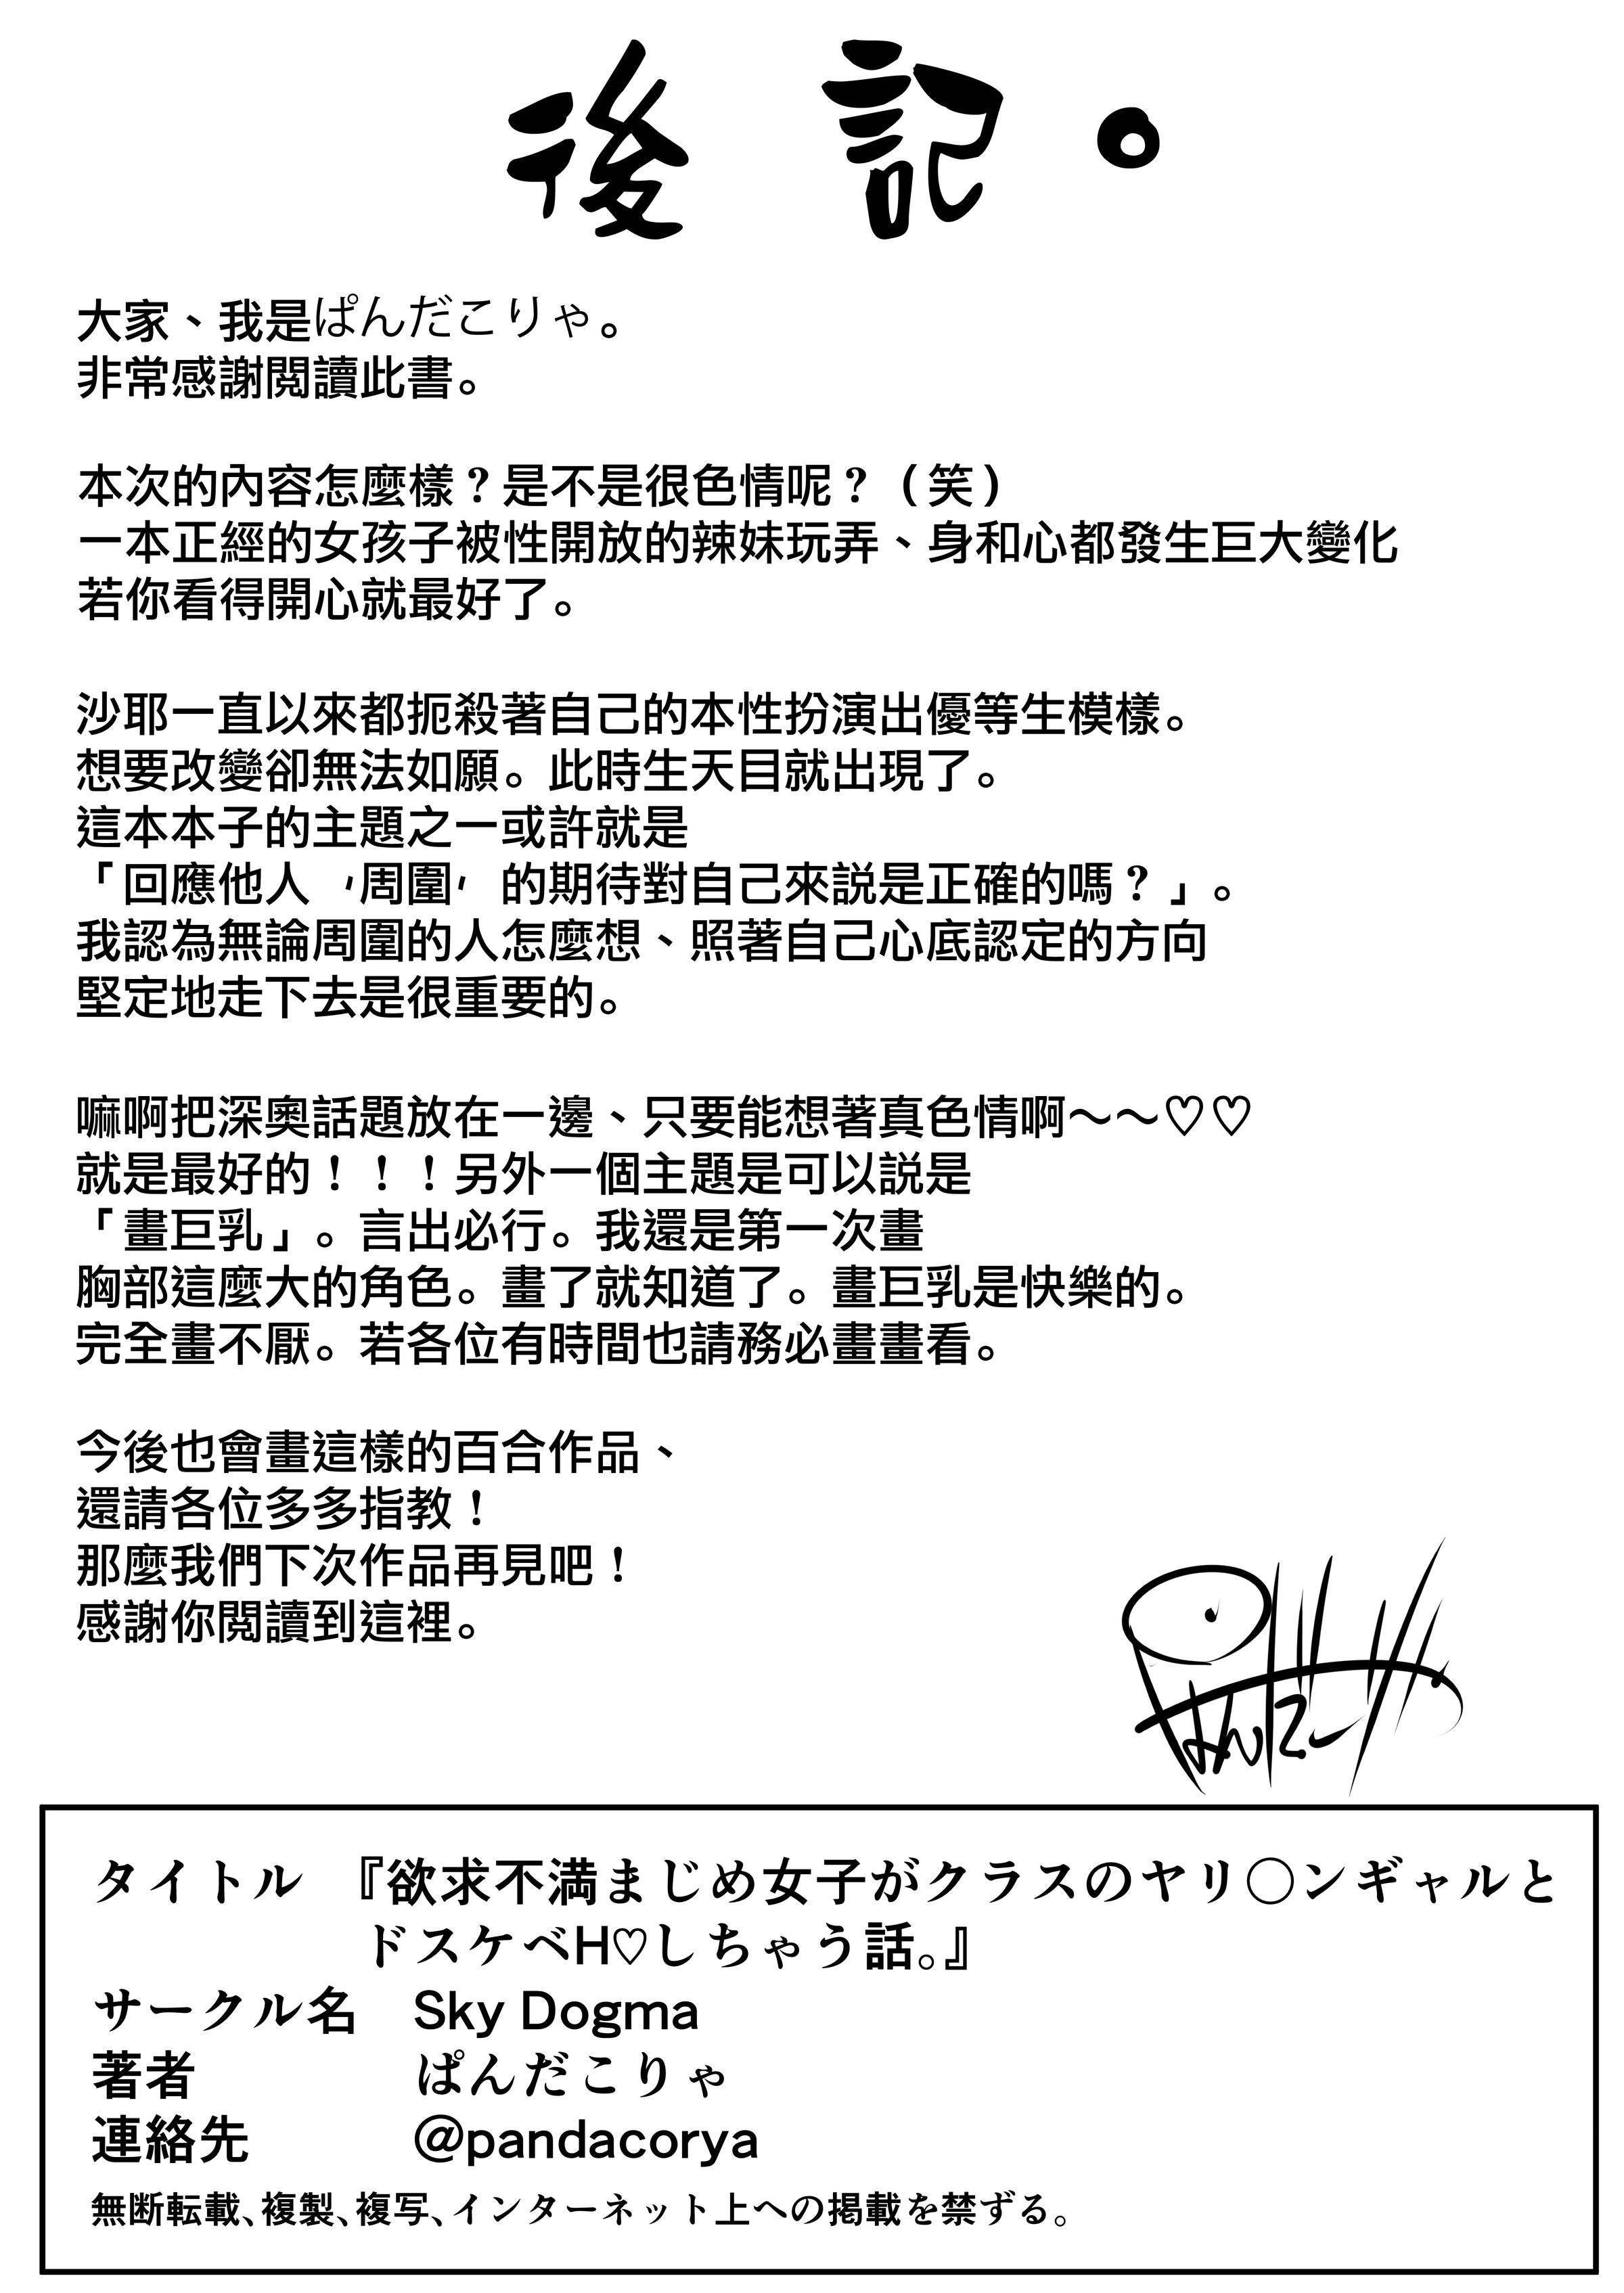 後記。
大家、我是ぱんだこりゃ。
非常感謝閲讀此書。
本次的內容怎麼樣？是不是很色情呢？（笑）
一本正經的女孩子被性開放的辣妹玩弄、身和心都發生巨大變化
若你看得開心就最好了。
沙耶一直以來都扼殺著自己的本性扮演出優等生模樣。
想要改變卻無法如願。此時生天目就出現了。
這本本子的主題之一或許就是
「回應他人 ′周圍′ 的期待對自己來説是正確的嗎？」。
我認為無論周圍的人怎麼想、照著自己心底認定的方向
堅定地走下去是很重要的。
嘛啊把深奧話題放在一邊、只要能想著真色情啊～～♡♡
就是最好的！！！另外一個主題是可以説是
「畫巨乳」。言出必行。我還是第一次畫
胸部這麼大的角色。畫了就知道了。畫巨乳是快樂的。
完全畫不厭。若各位有時間也請務必畫畫看。
今後也會畫這樣的百合作品、
還請各位多多指教！
那麼我們下次作品再見吧！
感謝你閲讀到這裡。
タイトル 『欲求不満まじめ女子がクラスのヤリ◯ンギャルと
ドスケベH♡しちゃう話。』
サークル名 Sky Dogma
著者 ぱんだこりゃ
連絡先 @pandacorya
無断転載、複製、複写、インターネット上への掲載を禁ずる。